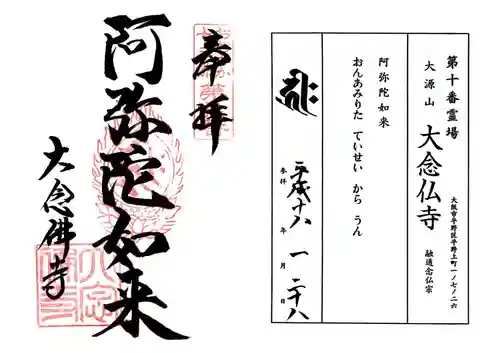 奉拝
阿弥陀如来
大念佛寺
第十番霊場
大源山 大念仏寺
大阪市平野区平野上町一ノ七ノ二六
融通念仏宗
阿弥陀如来
おんあみりた ていせい から うん
平成十八年 一月 二十八日
参拝